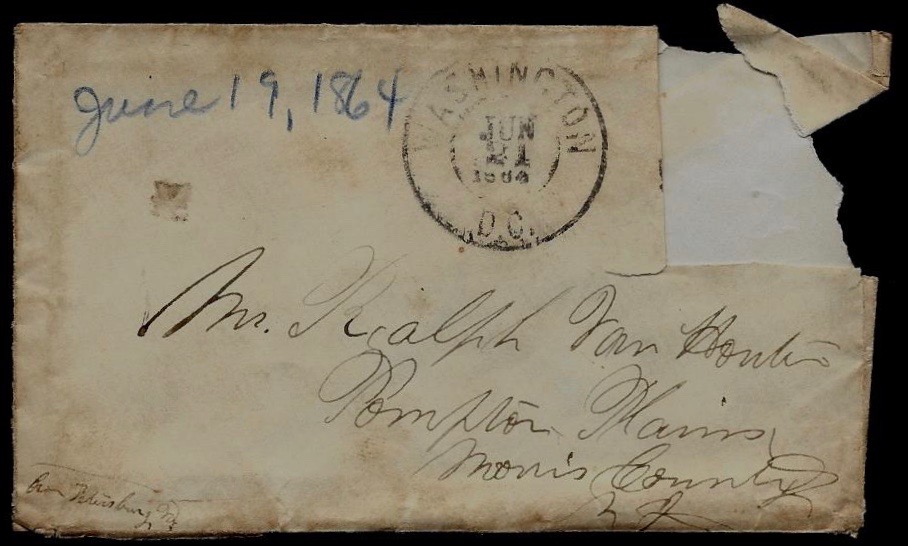 June 19, 1864
WASHINGTON
JUN
21
1864
D.C.
Mr. Ralph Van Houten
Pompton Plains
Morris County
N J
Petersburg Va